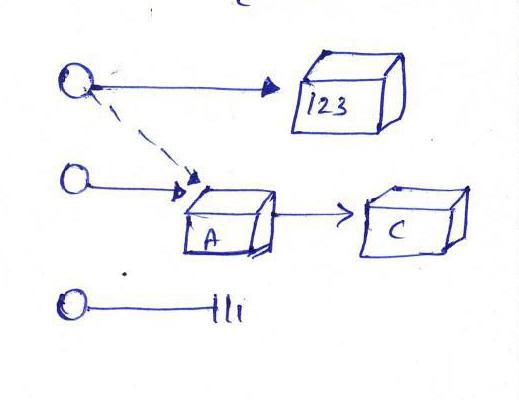 123
A
C